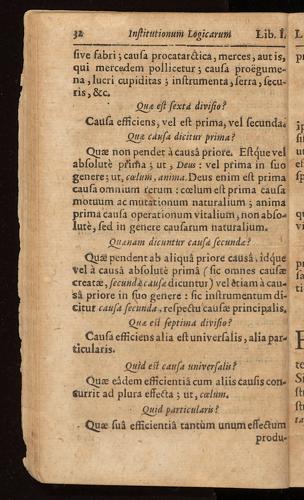 32 Institutionum Logicarum Lib. I.
sive fabri; causa procatarctica, merces, aut is,
qui mercedem pollicetur; causa proëgume-
na, lucri cupiditas; instrumenta, serra, secu-
ris, &c.
Quæ est sexta divisio?
Causa efficiens, vel est prima, vel secunda.
Quæ causa dicitur prima?
Quæ non pendet à causâ priore. Estque vel
absolutè prima; ut, Deus: vel prima in suo
genere; ut, cœlum, anima. Deus enim est prima
causa omnium rerum: cœlum est prima causa
motuum ac mutationum naturalium; anima
prima causa operationum vitalium, non abso-
lutè, sed in genere causarum naturalium.
Quænam dicuntur causæ secundæ?
Quæ pendent ab aliquâ priore causâ: idque
vel à causâ absolutè primâ (sic omnes causæ
creatæ, secundæ causæ dicuntur) vel etiam à cau-
sâ priore in suo genere: sic instrumentum di-
citur causa secunda, respectu causæ principalis.
Quæ est septima divisio?
Causa efficiens alia est universalis, alia par-
ticularis.
Quid est causa universalis?
Quæ eâdem efficientiâ cum aliis causis con-
currit ad plura effecta; ut, cœlum.
Quid particularis?
Quæ suâ efficientiâ tantùm unum effectum
produ-